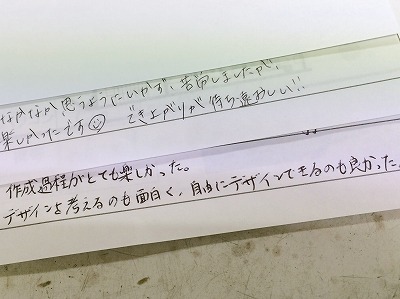 なかなか思うようにいかず、苦労しましたが、
楽しかったです☺ できあがりが待ち遠おしい!!
作成過程がとても楽しかった。
デザインを考えるのも面白く、自由にデザインできるのも良かった。